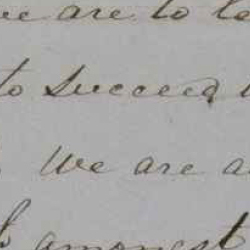 we are to
to succeed
We are
amongst